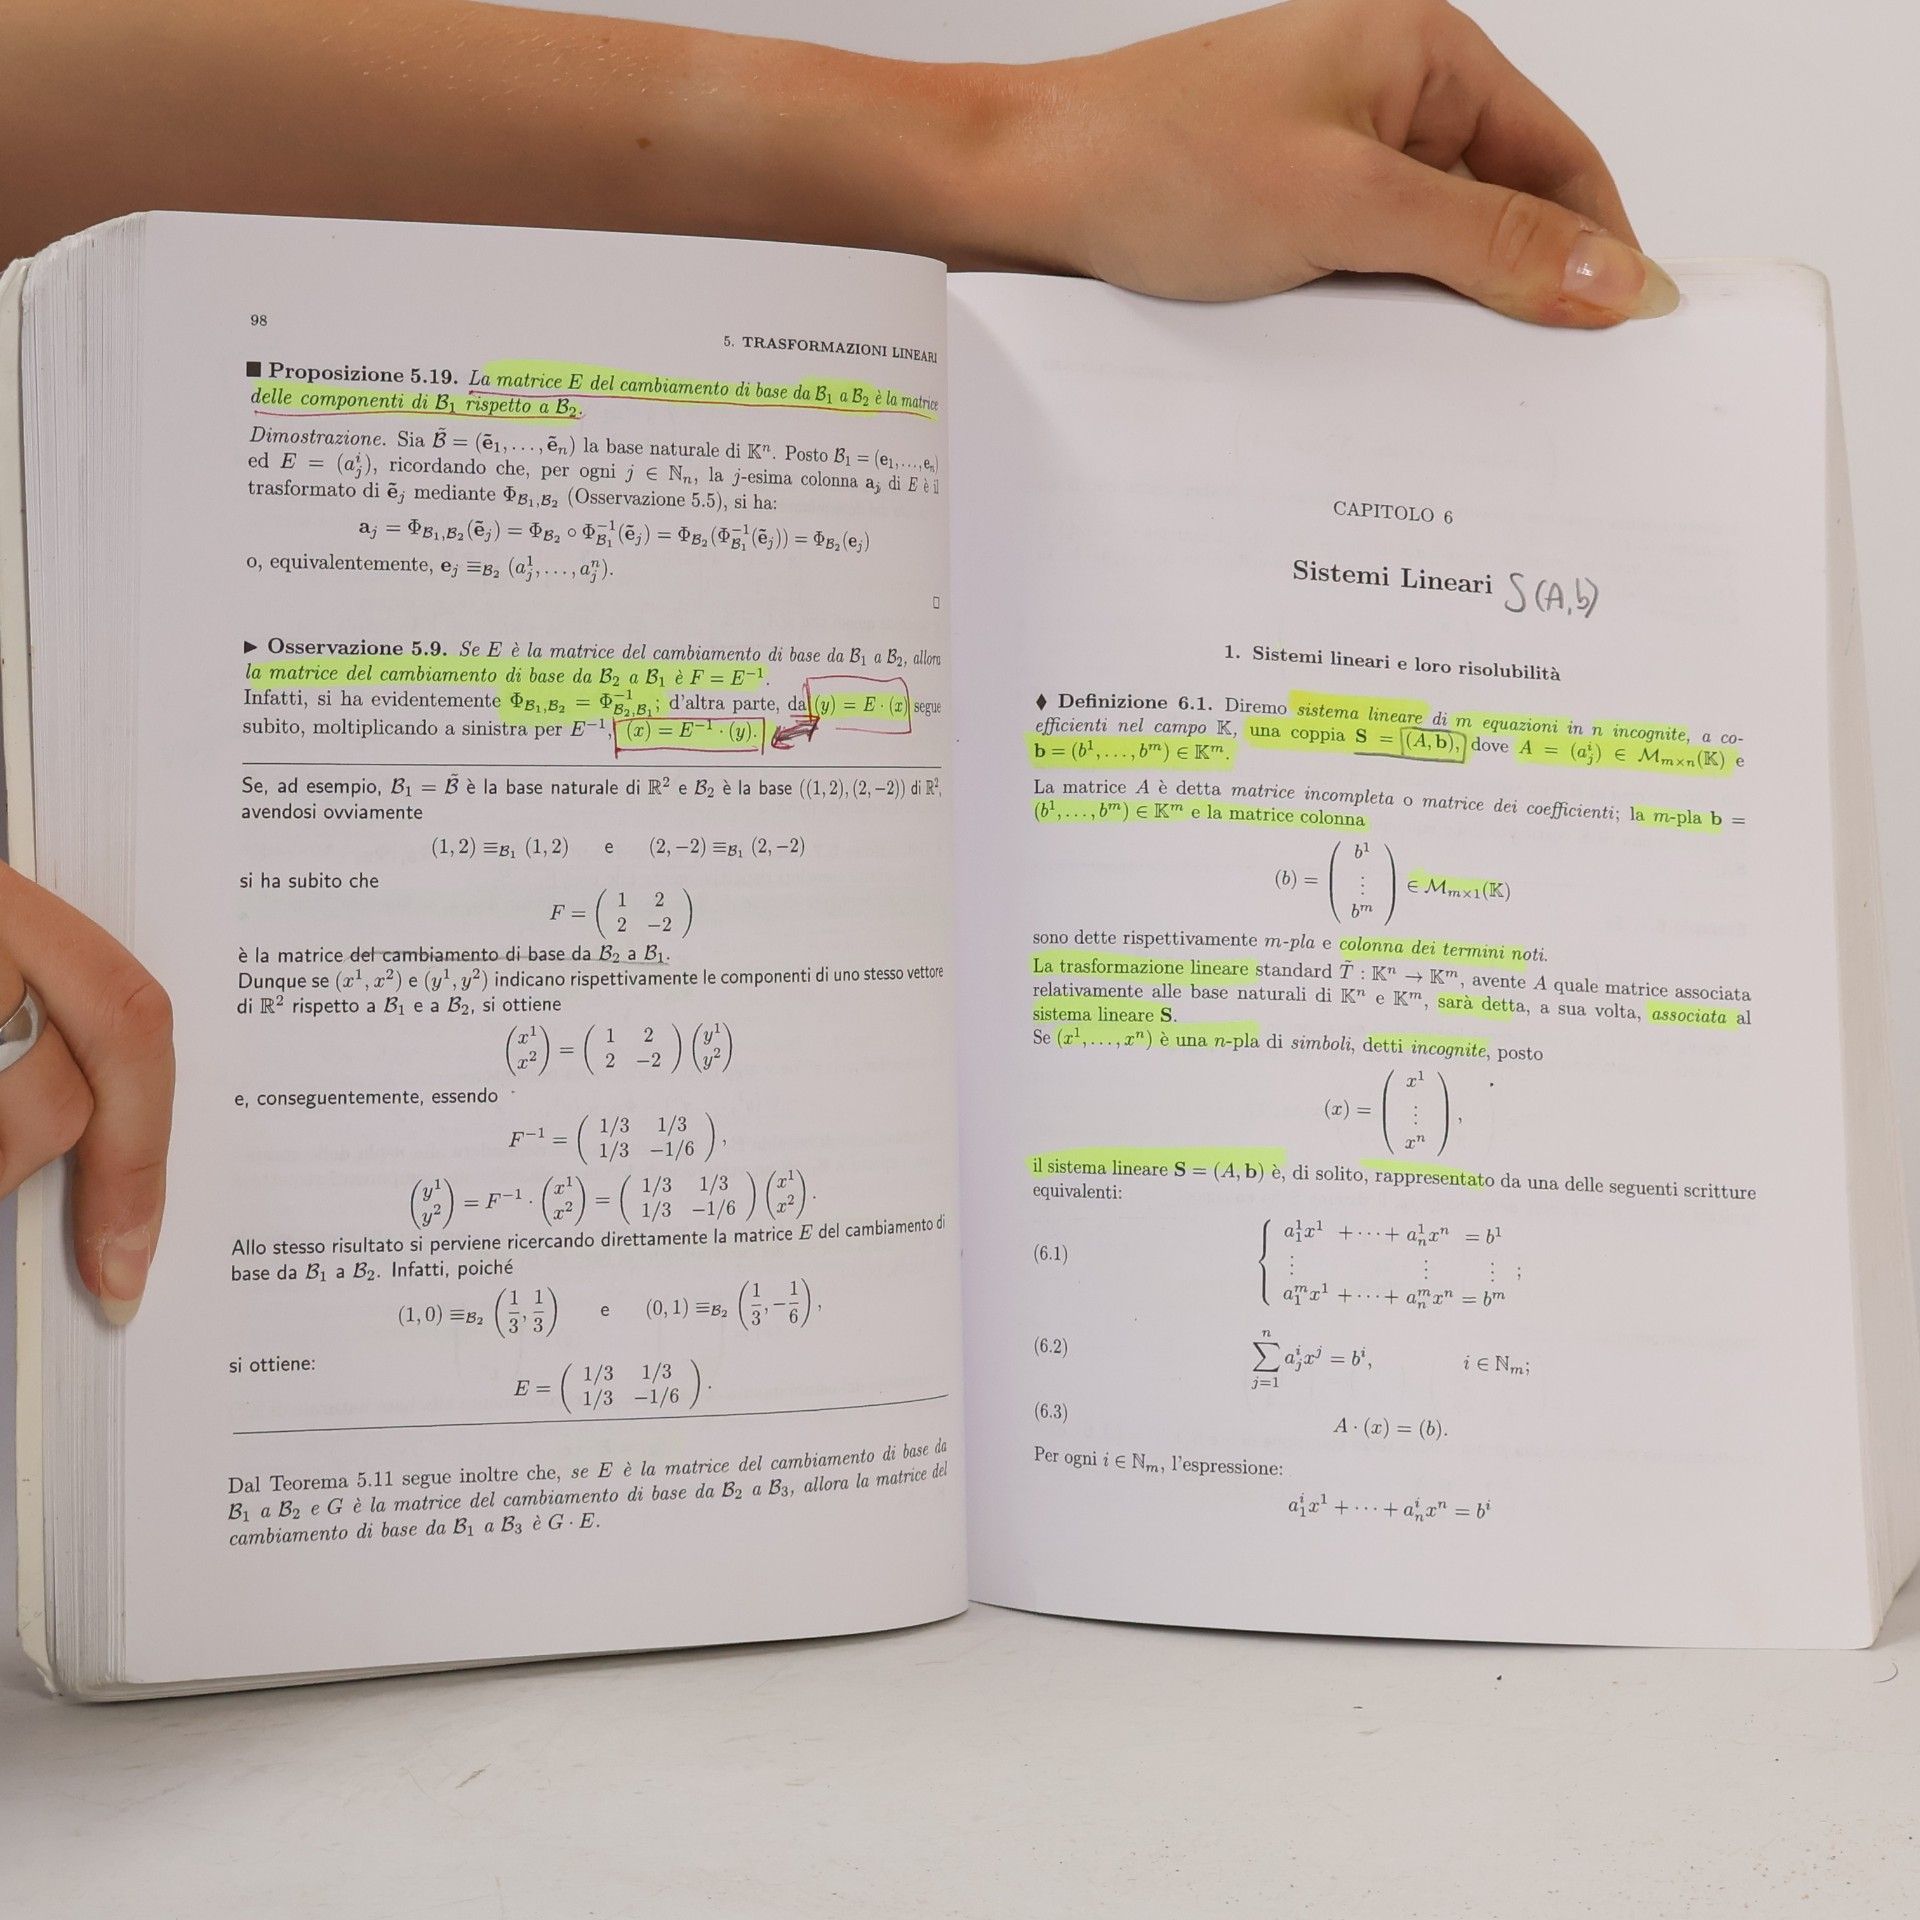 98
5. TRASFORMAZIONI LINEARI
■ Proposizione 5.19. La matrice E del cambiamento di base da B₁ a B₂ è la matrice
delle componenti di B₁ rispetto a B₂.
Dimostrazione. Sia B̃ = (ẽ₁, . . . , ẽₙ) la base naturale di 𝕂ⁿ. Posto B₁ = (e₁, . . . , eₙ)
ed E = (aⁱⱼ), ricordando che, per ogni j ∈ ℕₙ, la j-esima colonna aⱼ di E è il
trasformato di ẽⱼ mediante Φ_{B₁,B₂} (Osservazione 5.5), si ha:
aⱼ = Φ_{B₁,B₂}(ẽⱼ) = Φ_{B₂} ∘ Φ_{B₁}⁻¹(ẽⱼ) = Φ_{B₂}(Φ_{B₁}⁻¹(ẽⱼ)) = Φ_{B₂}(eⱼ)
o, equivalentemente, eⱼ ≡_{B₂} (a¹ⱼ, . . . , aⁿⱼ).
□
► Osservazione 5.9. Se E è la matrice del cambiamento di base da B₁ a B₂, allora
la matrice del cambiamento di base da B₂ a B₁ è F = E⁻¹.
Infatti, si ha evidentemente Φ_{B₁,B₂} = Φ⁻¹_{B₂,B₁}; d'altra parte, da (y) = E · (x) segue
subito, moltiplicando a sinistra per E⁻¹, (x) = E⁻¹ · (y).
Se, ad esempio, B₁ = B̃ è la base naturale di ℝ² e B₂ è la base ((1, 2), (2, −2)) di ℝ²,
avendosi ovviamente
(1, 2) ≡_{B₁} (1, 2) e (2, −2) ≡_{B₁} (2, −2)
si ha subito che
F = ( 1 2
2 −2 )
è la matrice del cambiamento di base da B₂ a B₁.
Dunque se (x¹, x²) e (y¹, y²) indicano rispettivamente le componenti di uno stesso vettore
di ℝ² rispetto a B₁ e a B₂, si ottiene
(x¹ x²) = ( 1 2
2 −2 ) (y¹ y²)
e, conseguentemente, essendo
F⁻¹ = ( 1/3 1/3
1/3 −1/6 ),
(y¹ y²) = F⁻¹ · (x¹ x²) = ( 1/3 1/3
1/3 −1/6 ) (x¹ x²).
Allo stesso risultato si perviene ricercando direttamente la matrice E del cambiamento di
base da B₁ a B₂. Infatti, poiché
(1, 0) ≡_{B₂} (1/3, 1/3) e (0, 1) ≡_{B₂} (1/3, −1/6),
si ottiene:
E = ( 1/3 1/3
1/3 −1/6 ).
Dal Teorema 5.11 segue inoltre che, se E è la matrice del cambiamento di base da
B₁ a B₂ e G è la matrice del cambiamento di base da B₂ a B₃, allora la matrice del
cambiamento di base da B₁ a B₃ è G · E.
CAPITOLO 6
Sistemi Lineari S(A,b)
1. Sistemi lineari e loro risolubilità
♦ Definizione 6.1. Diremo sistema lineare di m equazioni in n incognite, a co-
efficienti nel campo 𝕂, una coppia S = (A, b), dove A = (aⁱⱼ) ∈ M_{m×n}(𝕂) e
b = (b¹, . . . , bᵐ) ∈ 𝕂ᵐ.
La matrice A è detta matrice incompleta o matrice dei coefficienti; la m-pla b =
(b¹, . . . , bᵐ) ∈ 𝕂ᵐ e la matrice colonna
(b) = ( b¹
⋮
bᵐ ) ∈ M_{m×1}(𝕂)
sono dette rispettivamente m-pla e colonna dei termini noti.
La trasformazione lineare standard T̃ : 𝕂ⁿ → 𝕂ᵐ, avente A quale matrice associata
relativamente alle base naturali di 𝕂ⁿ e 𝕂ᵐ, sarà detta, a sua volta, associata al
sistema lineare S.
Se (x¹, . . . , xⁿ) è una n-pla di simboli, detti incognite, posto
(x) = ( x¹
⋮
xⁿ ),
il sistema lineare S = (A, b) è, di solito, rappresentato da una delle seguenti scritture
equivalenti:
(6.1) { a¹₁x¹ + · · · + a¹ₙxⁿ = b¹
⋮ ⋮ ⋮ ;
aᵐ₁x¹ + · · · + aᵐₙxⁿ = bᵐ
(6.2) ∑ⁿⱼ₌₁ aⁱⱼxʲ = bⁱ, i ∈ ℕₘ;
(6.3) A · (x) = (b).
Per ogni i ∈ ℕₘ, l'espressione:
aⁱ₁x¹ + · · · + aⁱₙxⁿ = bⁱ